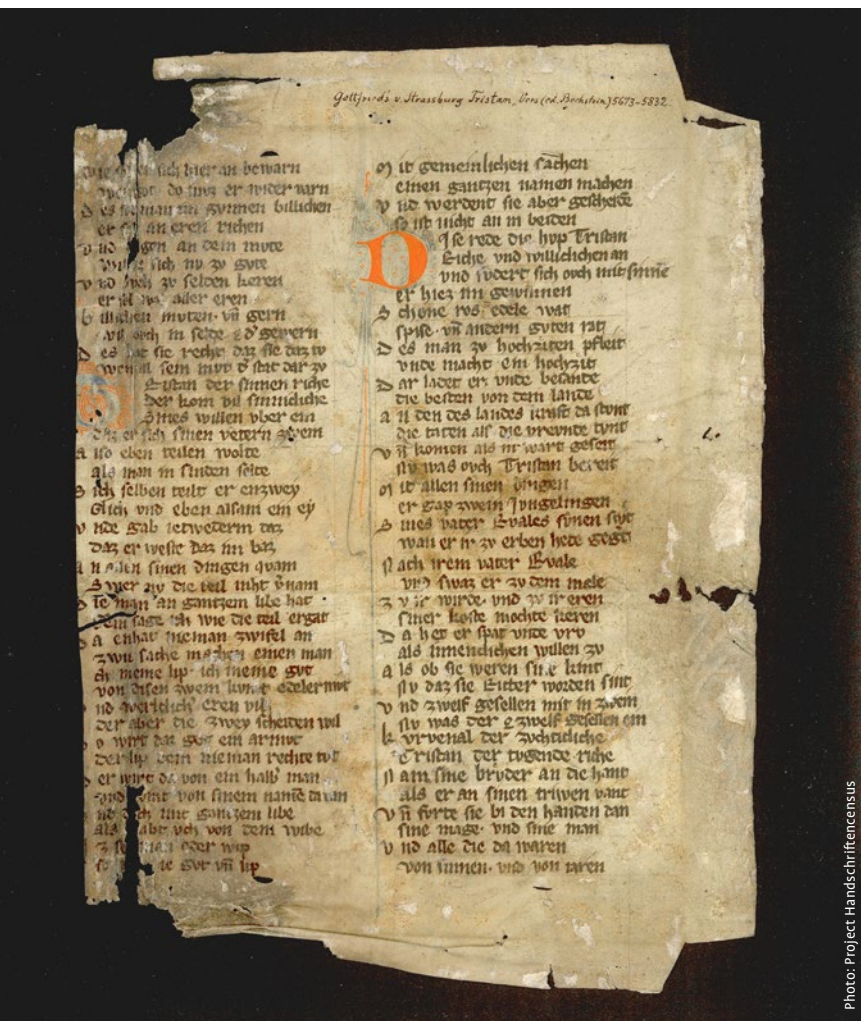 Gottfrieds v. Strassburg Tristan, Vers (ed. Bechstein) 5673-5832.
sich hier an bewarn
do mvz er wider varn
man im gvnnen billichen
er an eren richen
v nd an dem mvte
sich nv zv gvte
v nd zv selden keren
er aller eren
b illichen mvten. vn̄ gern
ovch in selde
D es hat sie recht daz sie daz tv
sem mvt stat dar zv
Tristan der sinnen riche
Der kom vil sinnicliche
Sines willen vber ein
daz er sich sinen vetern zwein
A lso eben teilen wolte
als man in sinden solte
S ich selben teilt er enzwey
Glich vnd eben alsam ein ey
v nde gab ietwederm daz
daz er weste daz im baz
sinen dingen quam
Swer nv die teil niht
man an gantzem libe hat
dem sage ich wie die teil ergat
D a enhat nieman zwifel an
zwu sache machen einen man
ich meine lip. ich meine gvt
von disen zwein kvmt edeler mvt
v nd wertlich eren vil
der aber die zwey scheiden wil
wirt daz gvt ein armvt
der lip dem nieman rechte tvt
er wirt da von ein halb man
von sinem name dan
mit gantzem libe
als von dem wibe
man oder wip
gvt vn̄ lip
M it gemeinlichen sachen
einen gantzen namen machen
v nd werdent sie aber gescheide
so ist nicht an in beiden
Dise rede die hvp Tristan
Riche vnd willichlichen an
vnd vodert sich ovch mit sinne
er hiez im gewinnen
S chone ros edele wat
spise. vn̄ andern gvten rat
D es man zv hochziten pfleit
vnde macht ein hochzit
D ar ladet er. vnde besante
die besten von dem lande
A n den des landes kraft da stvnt
die taten als die vrevnde tvnt
v n̄ komen als in wart geseit
nv was ovch Tristan bereit
M it allen sinen dingen
er gap zwein Jvngelingen
S ines vater Rvales svnen swt
wan er ir zv erben hete gegt
N ach irem vater Rvale
vnd swaz er zv dem male
z v ir wirde. vnd zv ir eren
siner koste mochte keren
D a het er spat vnde vrv
als innenclichen willen zv
A ls ob sie weren sine kint
nv daz sie Ritter worden sint
v nd zwelf gesellen mit in zwein
nv was der zwelf gesellen ein
k vrvenal der zvchticliche
Tristan der tvgende riche
N am sine brvder an die hant
als er an sinen triwen vant
v n̄ fvrte sie bi den handen dan
sine mage. vnd sine man
v nd alle die da waren
von sinnen. vnd von iaren
Photo: Project Handschriftencensus